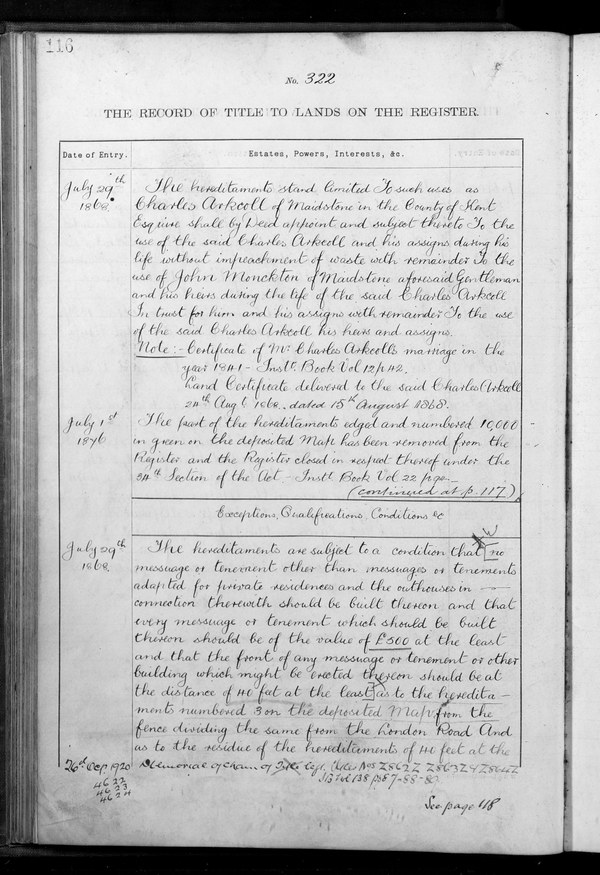 116
No. 322
THE RECORD OF TITLE TO LANDS ON THE REGISTER.
Date of Entry.
Estates, Powers, Interests, &c.
July 29th
1868.
The hereditaments stand limited To such uses as
Charles Arkcoll of Maidstone in the County of Kent
Esquire shall by Deed appoint and subject thereto To the
use of the said Charles Arkcoll and his assigns during his
life without impeachment of waste with remainder To the
use of John Monckton of Maidstone aforesaid Gentleman
and his heirs during the life of the said Charles Arkcoll
In trust for him and his assigns with remainder To the use
of the said Charles Arkcoll his heirs and assigns.
Note:- Certificate of Mr. Charles Arkcoll's marriage in the
year 1841 - Instt. Book Vol 12 p 42.
Land Certificate delivered to the said Charles Arkcoll
24th Augt. 1868. dated 15th August 1868.
July 1st
1876
The part of the hereditaments edged and numbered 10,000
in green on the deposited Map has been removed from the
Register and the Register closed in respect thereof under the
34th Section of the Act - Instt Book Vol 22 page
(continued at p. 117)
Exceptions, Qualifications, Conditions &c
July 29th
1868.
The hereditaments are subject to a condition that no
messuage or tenement other than messuages or tenements
adapted for private residences and the outhouses in
connection therewith should be built thereon and that
every messuage or tenement which should be built
thereon should be of the value of £500 at the least
and that the front of any messuage or tenement or other
building which might be erected thereon should be at
the distance of 40 feet at the least as to the heredita-
ments numbered 3 on the deposited Map from the
fence dividing the same from the London Road And
as to the residue of the hereditaments of 41 feet at the
26th Oct 1920
4622
4623
4624
See page 118